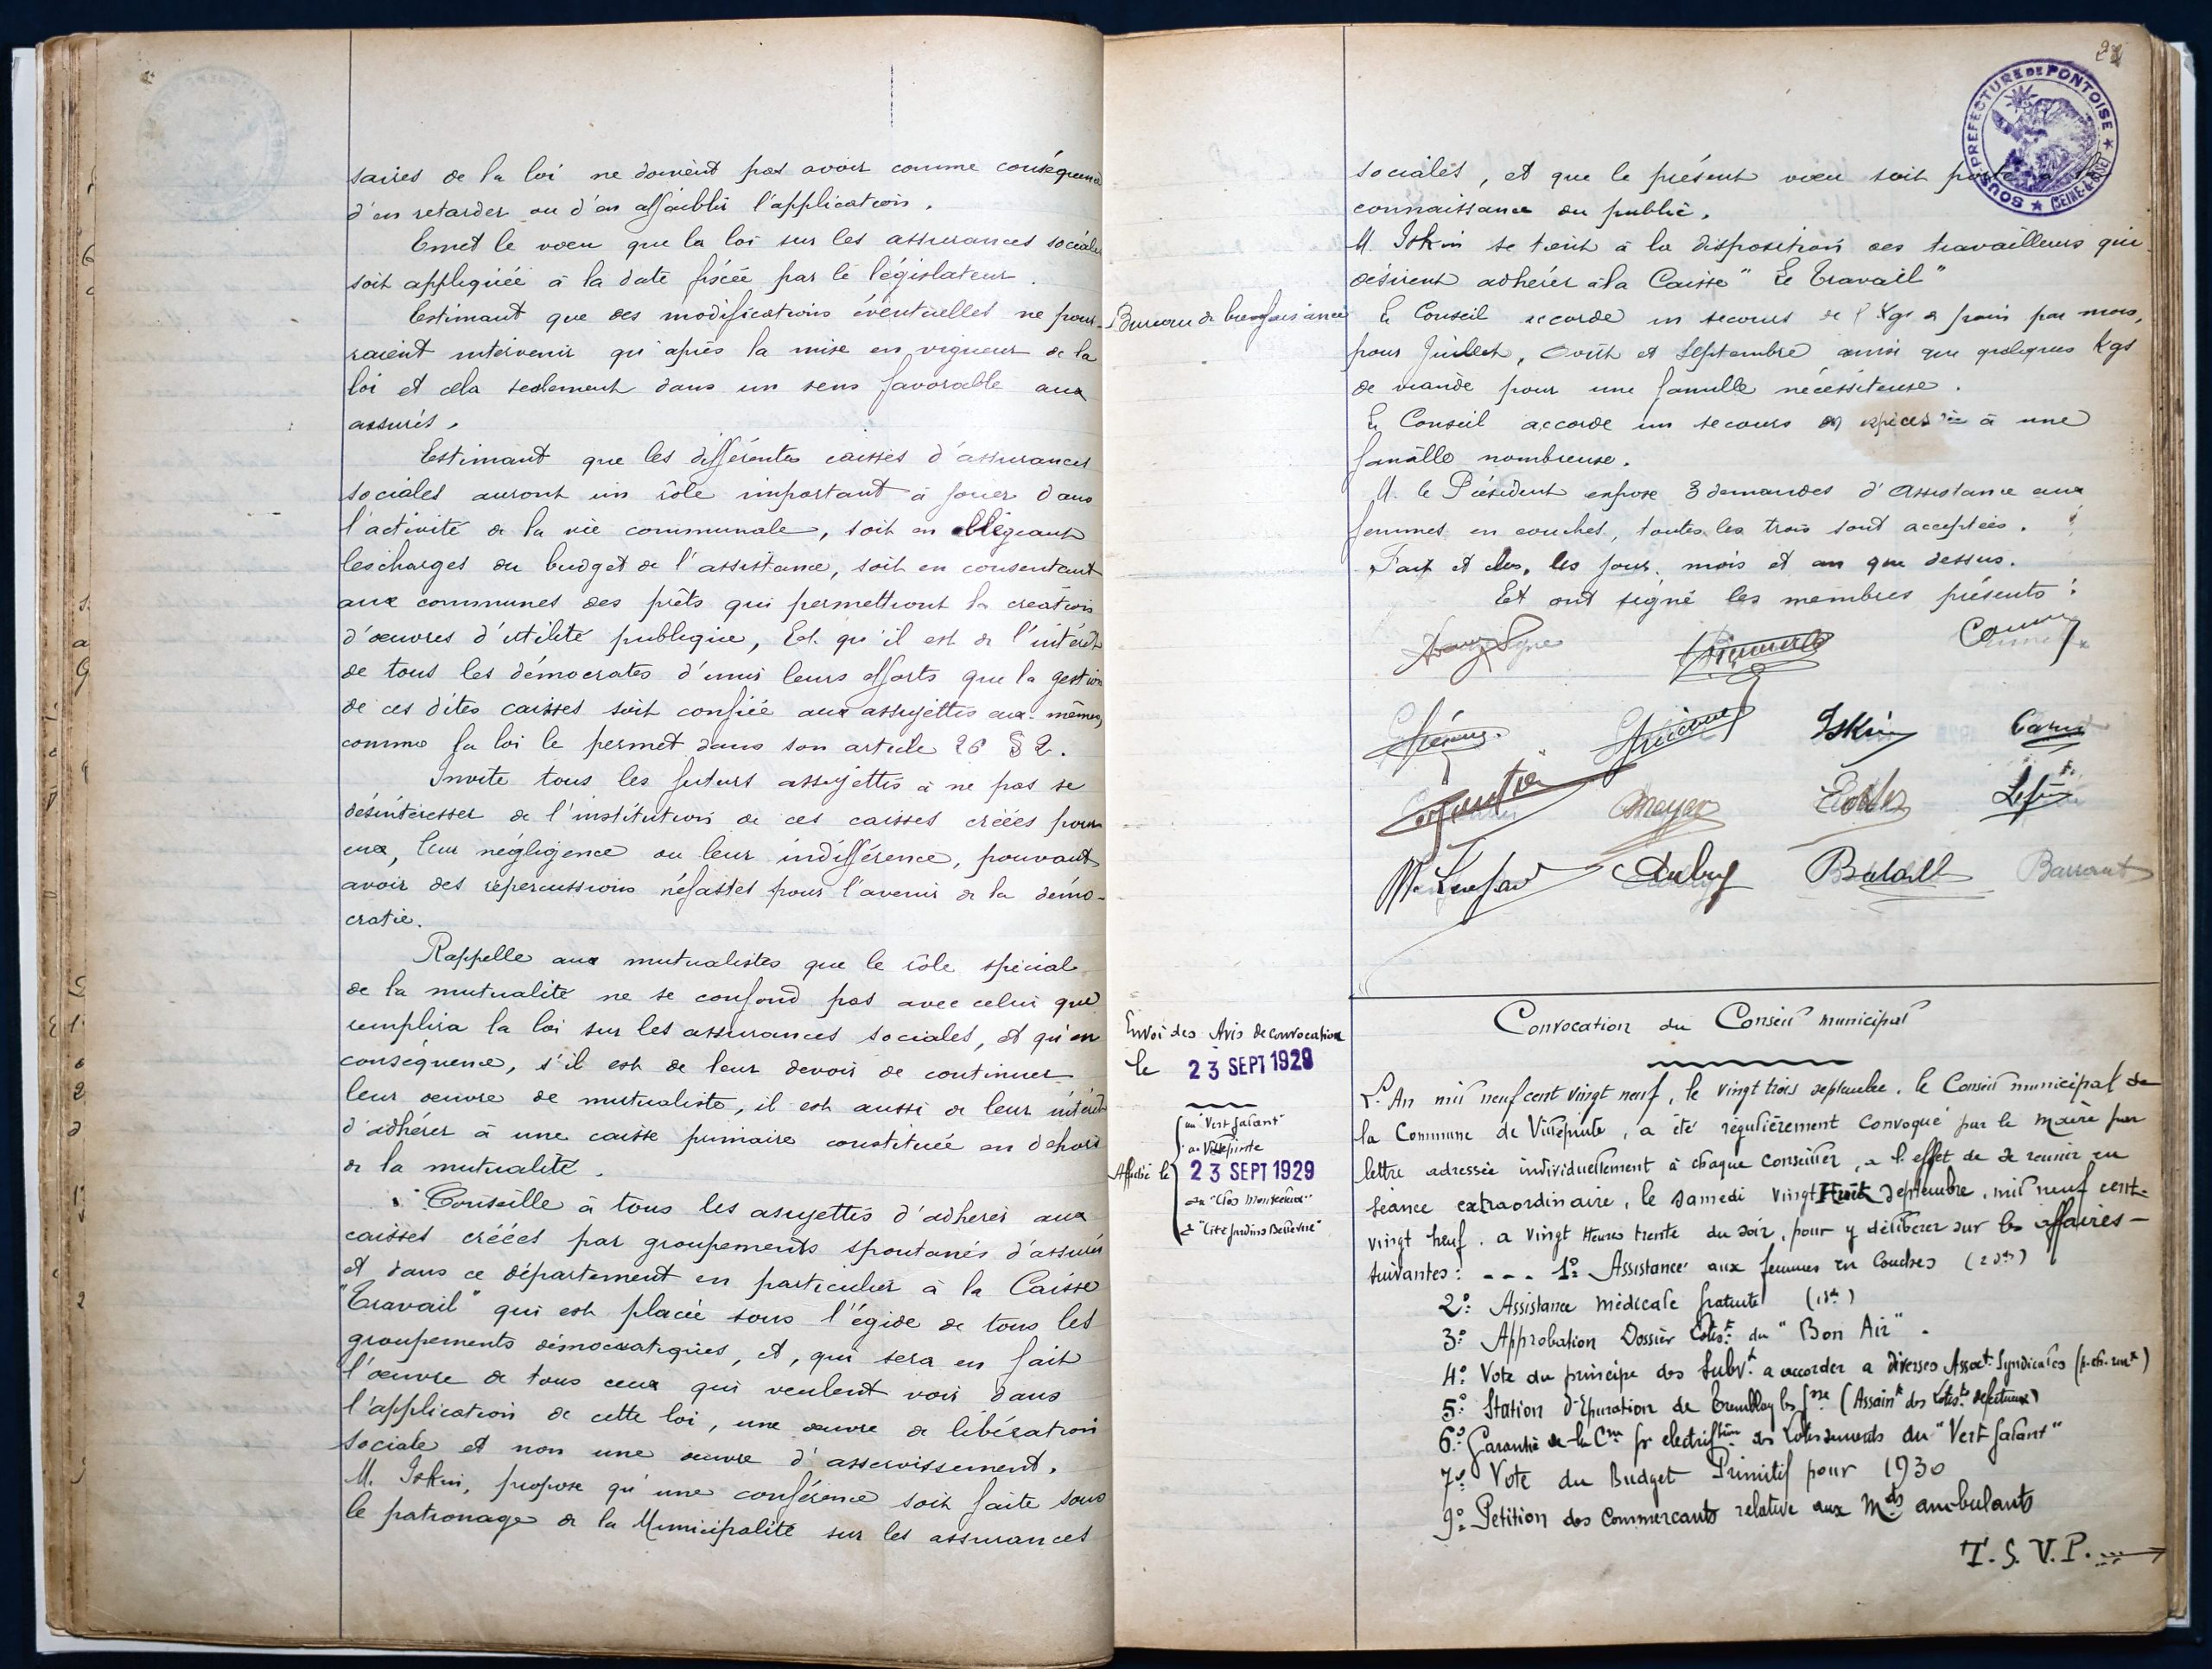 saires de la loi ne doivent pas avoir comme conséquence
d'en retarder ou d'en affaiblir l'application.
Emet le vœu que la loi sur les assurances sociales
soit appliquée à la date fixée par le législateur.
Estimant que des modifications éventuelles ne pour-
raient intervenir qu'après la mise en vigueur de la
loi et cela seulement dans un sens favorable aux
assurés.
Estimant que les différentes caisses d'assurances
sociales auront un rôle important à jouer dans
l'activité de la vie communale, soit en allégeant
les charges du budget de l'assistance, soit en consentant
aux communes des prêts qui permettront la création
d'œuvres d'utilité publique, Et qu'il est de l'intérêt
de tous les démocrates d'unir leurs efforts que la gestion
de ces dites caisses soit confiée aux assujettis eux-mêmes,
comme la loi le permet dans son article 26 § 2.
Invite tous les futurs assujettis à ne pas se
désintéresser de l'institution de ces caisses créées pour
eux, leur négligence ou leur indifférence, pouvant
avoir des répercussions néfastes pour l'avenir de la démo-
cratie.
Rappelle aux mutualistes que le rôle spécial
de la mutualité ne se confond pas avec celui que
remplira la loi sur les assurances sociales, et qu'en
conséquence, s'il est de leur devoir de continuer
leur œuvre de mutualiste, il est aussi de leur intérêt
d'adhérer à une caisse primaire constituée en dehors
de la mutualité.
Conseille à tous les assujettis d'adhérer aux
caisses créées par groupements spontanés d'assurés
et dans ce département en particulier à la Caisse
"Travail" qui est placée sous l'égide de tous les
groupements démocratiques, et, qui sera en fait
l'œuvre de tous ceux qui veulent voir dans
l'application de cette loi, une œuvre de libération
sociale et non une œuvre d'asservissement.
M. Iskin, propose qu'une conférence soit faite sous
le patronage de la Municipalité sur les assurances
SOUS PREFECTURE DE PONTOISE
(SEINE-&-OISE)
sociales, et que le présent vœu soit porté à la
connaissance du public.
M. Iskin se tient à la disposition des travailleurs qui
désirent adhérer à la Caisse "Le Travail"
Bureau de bienfaisance
Le Conseil accorde un secours de Kgs de pain par mois,
pour Juillet, Août et Septembre ainsi que quelques Kgs
de viande pour une famille nécessiteuse.
Le Conseil accorde un secours en espèces à une
famille nombreuse.
M. le Président expose 3 demandes d'Assistance aux
femmes en couches, toutes les trois sont acceptées.
Fait et clos, les jour, mois et an que dessus.
Et ont signé les membres présents :
Iskin
Meyer
Aubry Bataille Barrant
Convocation du Conseil municipal
Envoi des Avis de convocation
le 23 SEPT 1929
au "Vert galant"
a Villepinte
Affiché le 23 SEPT 1929
au "Clos Montceleux"
a "Cité Jardins Bellevue"
L'An mil neuf cent vingt neuf, le vingt trois septembre, le Conseil municipal de
la Commune de Villepinte, a été régulièrement convoqué par le Maire par
lettre adressée individuellement à chaque conseiller, a l'effet de se réunir en
séance extraordinaire, le samedi vingt Huit Septembre, mil neuf cent
vingt neuf, a vingt Heures trente du soir, pour y délibérer sur les affaires
suivantes : - - - 1º Assistance aux femmes en Couches
2º: Assistance médicale gratuite
3º: Approbation Dossier Lotist du "Bon Air".
4º: Vote du principe des Subvt a accorder a diverses Assoct Syndicales
5º: Station d'Epuration de Tremblay les Gsse (Assaint des Lotists défectueux)
6º: Garantie de la Cne pr electriftion des Lotissements du "Vert galant"
7º: Vote du Budget Primitif pour 1930
9º: Petition des Commercants relative aux Mds ambulants
T.S.V.P.